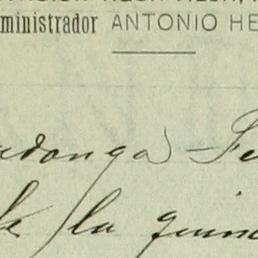 ministrador ANTONIO HE
adonga - Fe
de la quin